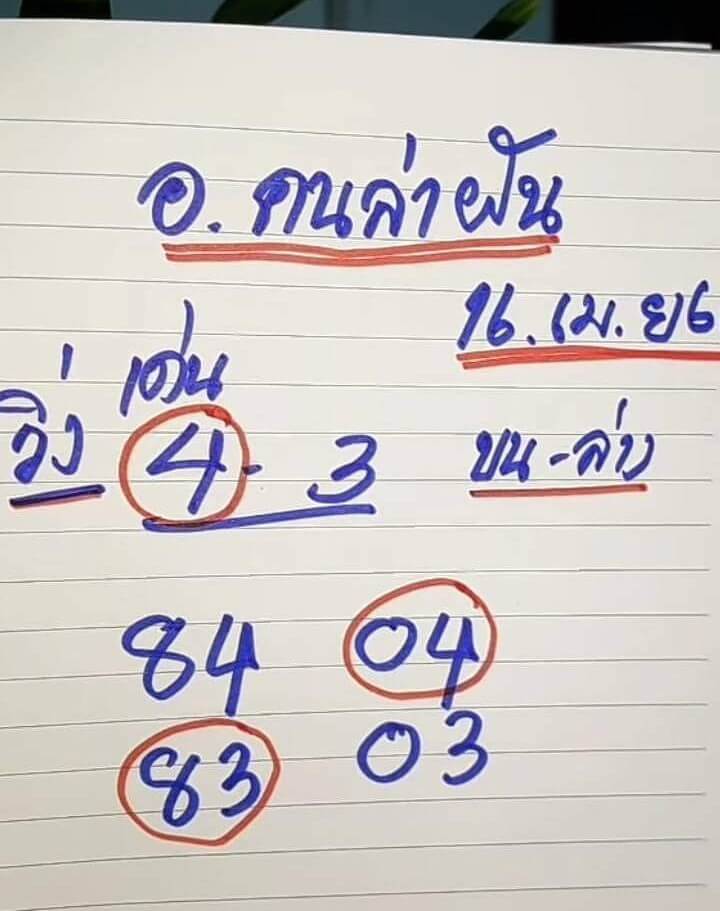 อ. คนล่าฝัน
16. เม. ย 6
เด่น
วิ่ง 4 - 3 บน - ล่าง
84 04
83 03